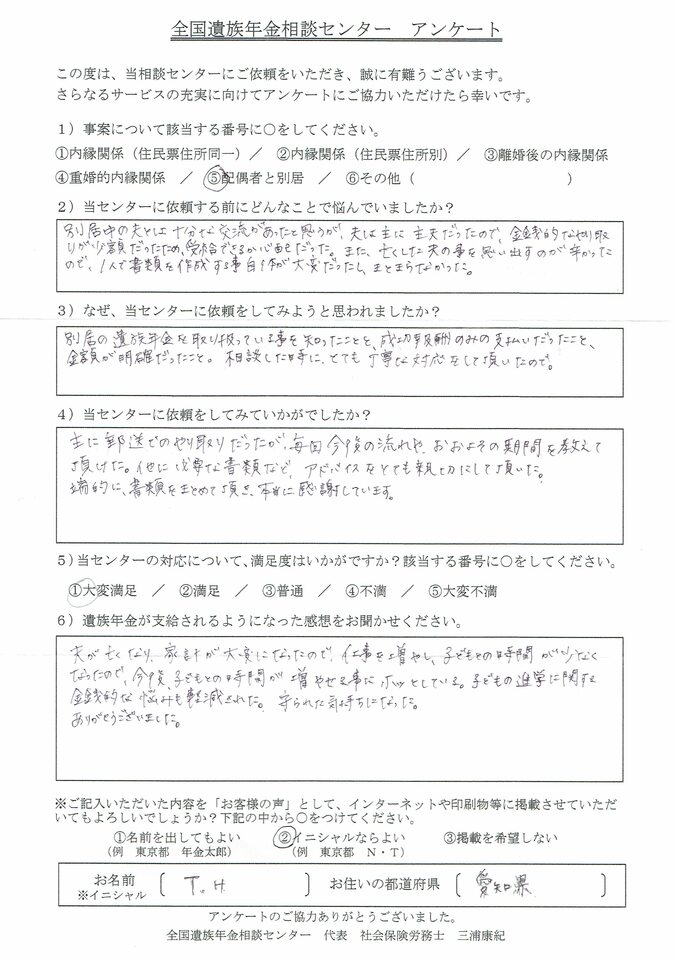 全国遺族年金相談センター　アンケート
この度は、当相談センターにご依頼をいただき、誠に有難うございます。
さらなるサービスの充実に向けてアンケートにご協力いただけたら幸いです。
1）事案について該当する番号に〇をしてください。
①内縁関係（住民票住所同一）／　②内縁関係（住民票住所別）／　③離婚後の内縁関係
④重婚的内縁関係　／　⑤配偶者と別居　／　⑥その他（　　　　　　　　　　）
2）当センターに依頼する前にどんなことで悩んでいましたか？
別居中の夫とは十分な交流があったと思うが、夫は主に主夫だったので、金銭的なやり取
りが少額だったため、受給できるか心配だった。また、亡くした夫の事を思い出すのが辛かった
ので、1人で書類を作成する事自体が大変だったし、まとまらなかった。
3）なぜ、当センターに依頼をしてみようと思われましたか？
別居の遺族年金を取り扱っている事を知ったことと、成功報酬のみの支払いだったこと、
金額が明確だったこと。相談した時に、とても丁寧な対応をして頂いたので。
4）当センターに依頼をしてみていかがでしたか？
主に郵送でのやり取りだったが、毎回今後の流れや、おおよその期間を教えて
頂けた。他に必要な書類など、アドバイスをとても親切にして頂いた。
端的に、書類をまとめて頂き、本当に感謝しています。
5）当センターの対応について、満足度はいかがですか？該当する番号に〇をしてください。
①大変満足　／　②満足　／　③普通　／　④不満　／　⑤大変不満
6）遺族年金が支給されるようになった感想をお聞かせください。
夫が亡くなり、家計が大変になったので、仕事を増やし、子どもとの時間が少なく
なったので、今後、子どもとの時間が増やせる事にホッとしている。子どもの進学に関する
金銭的な悩みも軽減された。守られた気持ちになった。
ありがとうございました。
※ご記入いただいた内容を「お客様の声」として、インターネットや印刷物等に掲載させていただ
いてもよろしいでしょうか？下記の中から〇をつけてください。
①名前を出してもよい　②イニシャルならよい　③掲載を希望しない
（例　東京都　年金太郎）　（例　東京都　N・T）
お名前　〔　T.H　〕　お住いの都道府県　〔　愛知県　〕
※イニシャル
アンケートのご協力ありがとうございました。
全国遺族年金相談センター　代表　社会保険労務士　三浦康紀